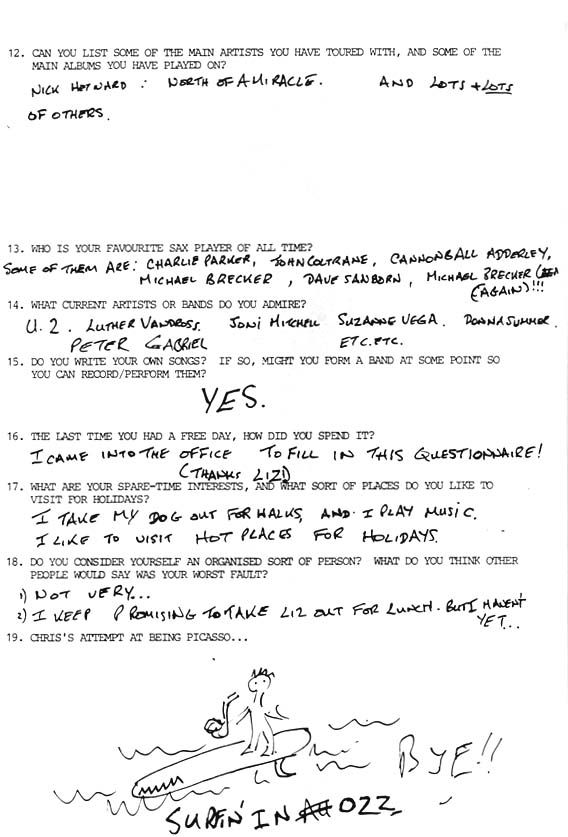 12. CAN YOU LIST SOME OF THE MAIN ARTISTS YOU HAVE TOURED WITH, AND SOME OF THE
MAIN ALBUMS YOU HAVE PLAYED ON?
NICK HEYWARD : NORTH OF A MIRACLE. AND LOTS + LOTS
OF OTHERS.
13. WHO IS YOUR FAVOURITE SAX PLAYER OF ALL TIME?
SOME OF THEM ARE: CHARLIE PARKER, JOHN COLTRANE, CANNONBALL ADDERLEY,
MICHAEL BRECKER, DAVE SANBORN, MICHAEL BRECKER
(AGAIN)!!!
14. WHAT CURRENT ARTISTS OR BANDS DO YOU ADMIRE?
U.2. LUTHER VANDROSS. JONI MITCHELL SUZANNE VEGA. DONNA SUMMER.
PETER GABRIEL ETC. ETC.
15. DO YOU WRITE YOUR OWN SONGS? IF SO, MIGHT YOU FORM A BAND AT SOME POINT SO
YOU CAN RECORD/PERFORM THEM?
YES.
16. THE LAST TIME YOU HAD A FREE DAY, HOW DID YOU SPEND IT?
I CAME INTO THE OFFICE TO FILL IN THIS QUESTIONNAIRE!
(THANKS LIZ!)
17. WHAT ARE YOUR SPARE-TIME INTERESTS, AND WHAT SORT OF PLACES DO YOU LIKE TO
VISIT FOR HOLIDAYS?
I TAKE MY DOG OUT FOR WALKS, AND I PLAY MUSIC.
I LIKE TO VISIT HOT PLACES FOR HOLIDAYS.
18. DO YOU CONSIDER YOURSELF AN ORGANISED SORT OF PERSON? WHAT DO YOU THINK OTHER
PEOPLE WOULD SAY WAS YOUR WORST FAULT?
1) NOT VERY...
2) I KEEP PROMISING TO TAKE LIZ OUT FOR LUNCH. BUT I HAVEN'T
YET...
19. CHRIS'S ATTEMPT AT BEING PICASSO...
BYE!!
SURFIN' IN OZZ